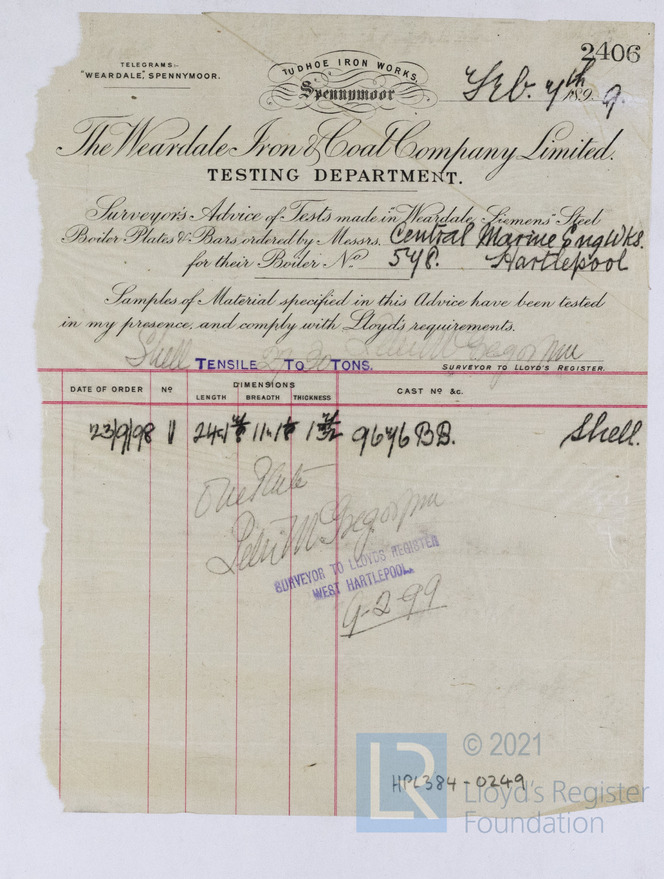 2406
TELEGRAMS:-
"WEARDALE", SPENNYMOOR.
TUDHOE IRON WORKS,
Spennymoor
Feb. 7th 1899.
The Weardale Iron & Coal Company Limited.
TESTING DEPARTMENT.
Surveyor's Advice of Tests made in Weardale Siemens' Steel
Boiler Plates & Bars, ordered by Messrs. Central Marine Eng Wks.
for their Boiler No. 548. Hartlepool
Samples of Material specified in this Advice have been tested
in my presence, and comply with Lloyd's requirements.
Shell TENSILE 27 TO 30 TONS.
SURVEYOR TO LLOYD'S REGISTER.
DATE OF ORDER No DIMENSIONS CAST No &c.
LENGTH BREADTH THICKNESS
23/9/98 1 9676 BB. Shell.
One Plate
SURVEYOR TO LLOYDS REGISTER
WEST HARTLEPOOL.
9-2-99
HPL384-0249
LR
© 2021
Lloyd's Register
Foundation